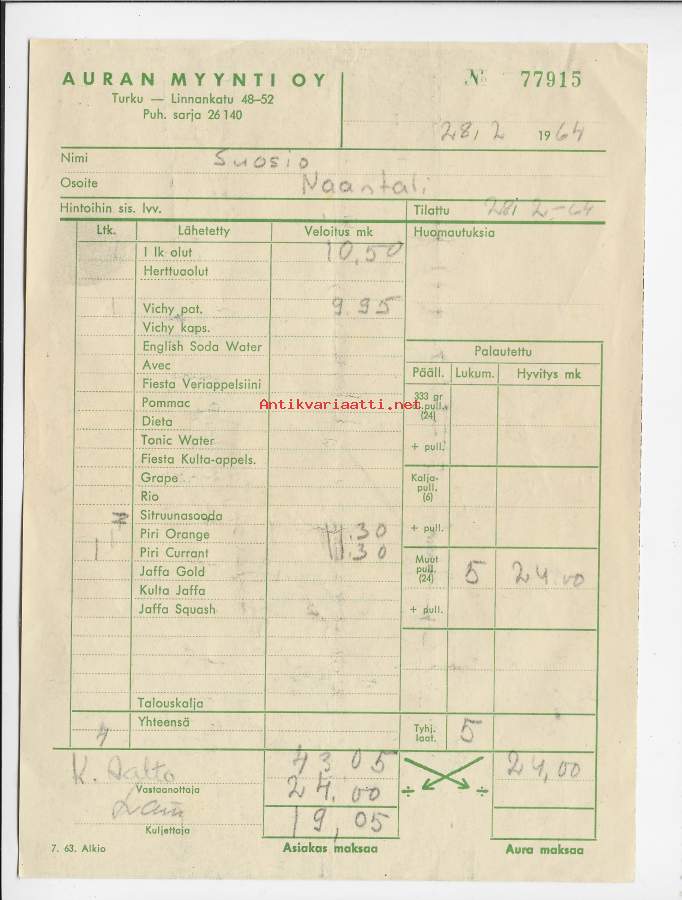 AURAN MYYNTI OY
Turku — Linnankatu 48–52
Puh. sarja 26 140
№ 77915
28, 2 1964
Nimi Suosio
Osoite Naantali
Hintoihin sis. lvv. Tilattu 28, 2-64
Ltk. Lähetetty Veloitus mk Huomautuksia
I lk olut 10,50
Herttuaolut
1 Vichy pat. 9.95
Vichy kaps.
English Soda Water
Avec
Fiesta Veriappelsiini
Pommac
Dieta
Tonic Water
Fiesta Kulta-appels.
Grape
Rio
Sitruunasooda
Piri Orange 11.30
1 Piri Currant 11.30
Jaffa Gold
Kulta Jaffa
Jaffa Squash
Talouskalja
4 Yhteensä
Palautettu
Pääll. Lukum. Hyvitys mk
333 gr
pull.
(24)
+ pull.
Kalja-
pull.
(6)
+ pull.
Muut
pull.
(24)
5 24,00
+ pull.
Tyhj.
laat.
5
K. Aalto 43.05 24,00
Vastaanottaja 24.00 ÷ ÷
Kuljettaja 19,05
7. 63. Alkio Asiakas maksaa Aura maksaa
Antikvariaatti.net